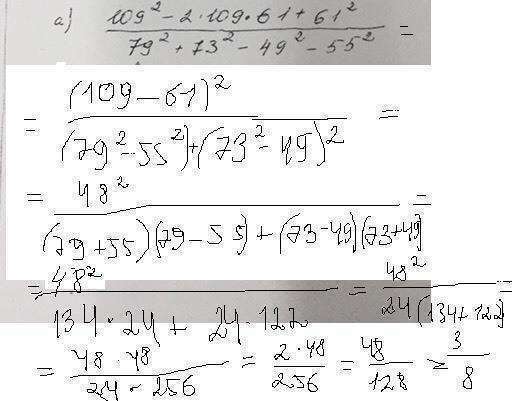 а) (109² - 2·109·61 + 61²) / (79² + 73² - 49² - 55²) =
= (109 - 61)² / ((79² - 55²) + (73² - 49)²) =
= 48² / ((79 + 55)(79 - 55) + (73 - 49)(73 + 49)) =
= 48² / (134 · 24 + 24 · 122) = 48² / (24 (134 + 122)) =
= (48 · 48) / (24 · 256) = (2 · 48) / 256 = 48 / 128 = 3 / 8